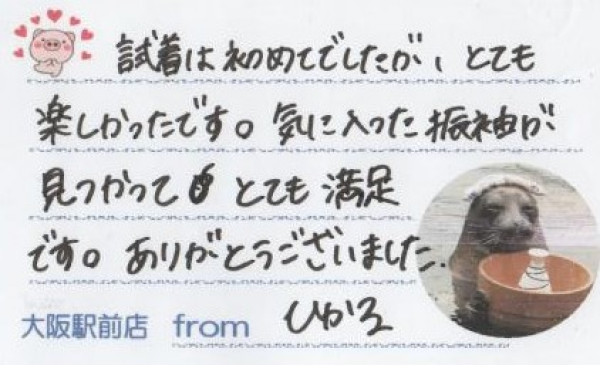 試着は初めてでしたが、とても
楽しかったです。気に入った振袖が
見つかって とても満足
です。ありがとうございました.
大阪駅前店 from ひかる